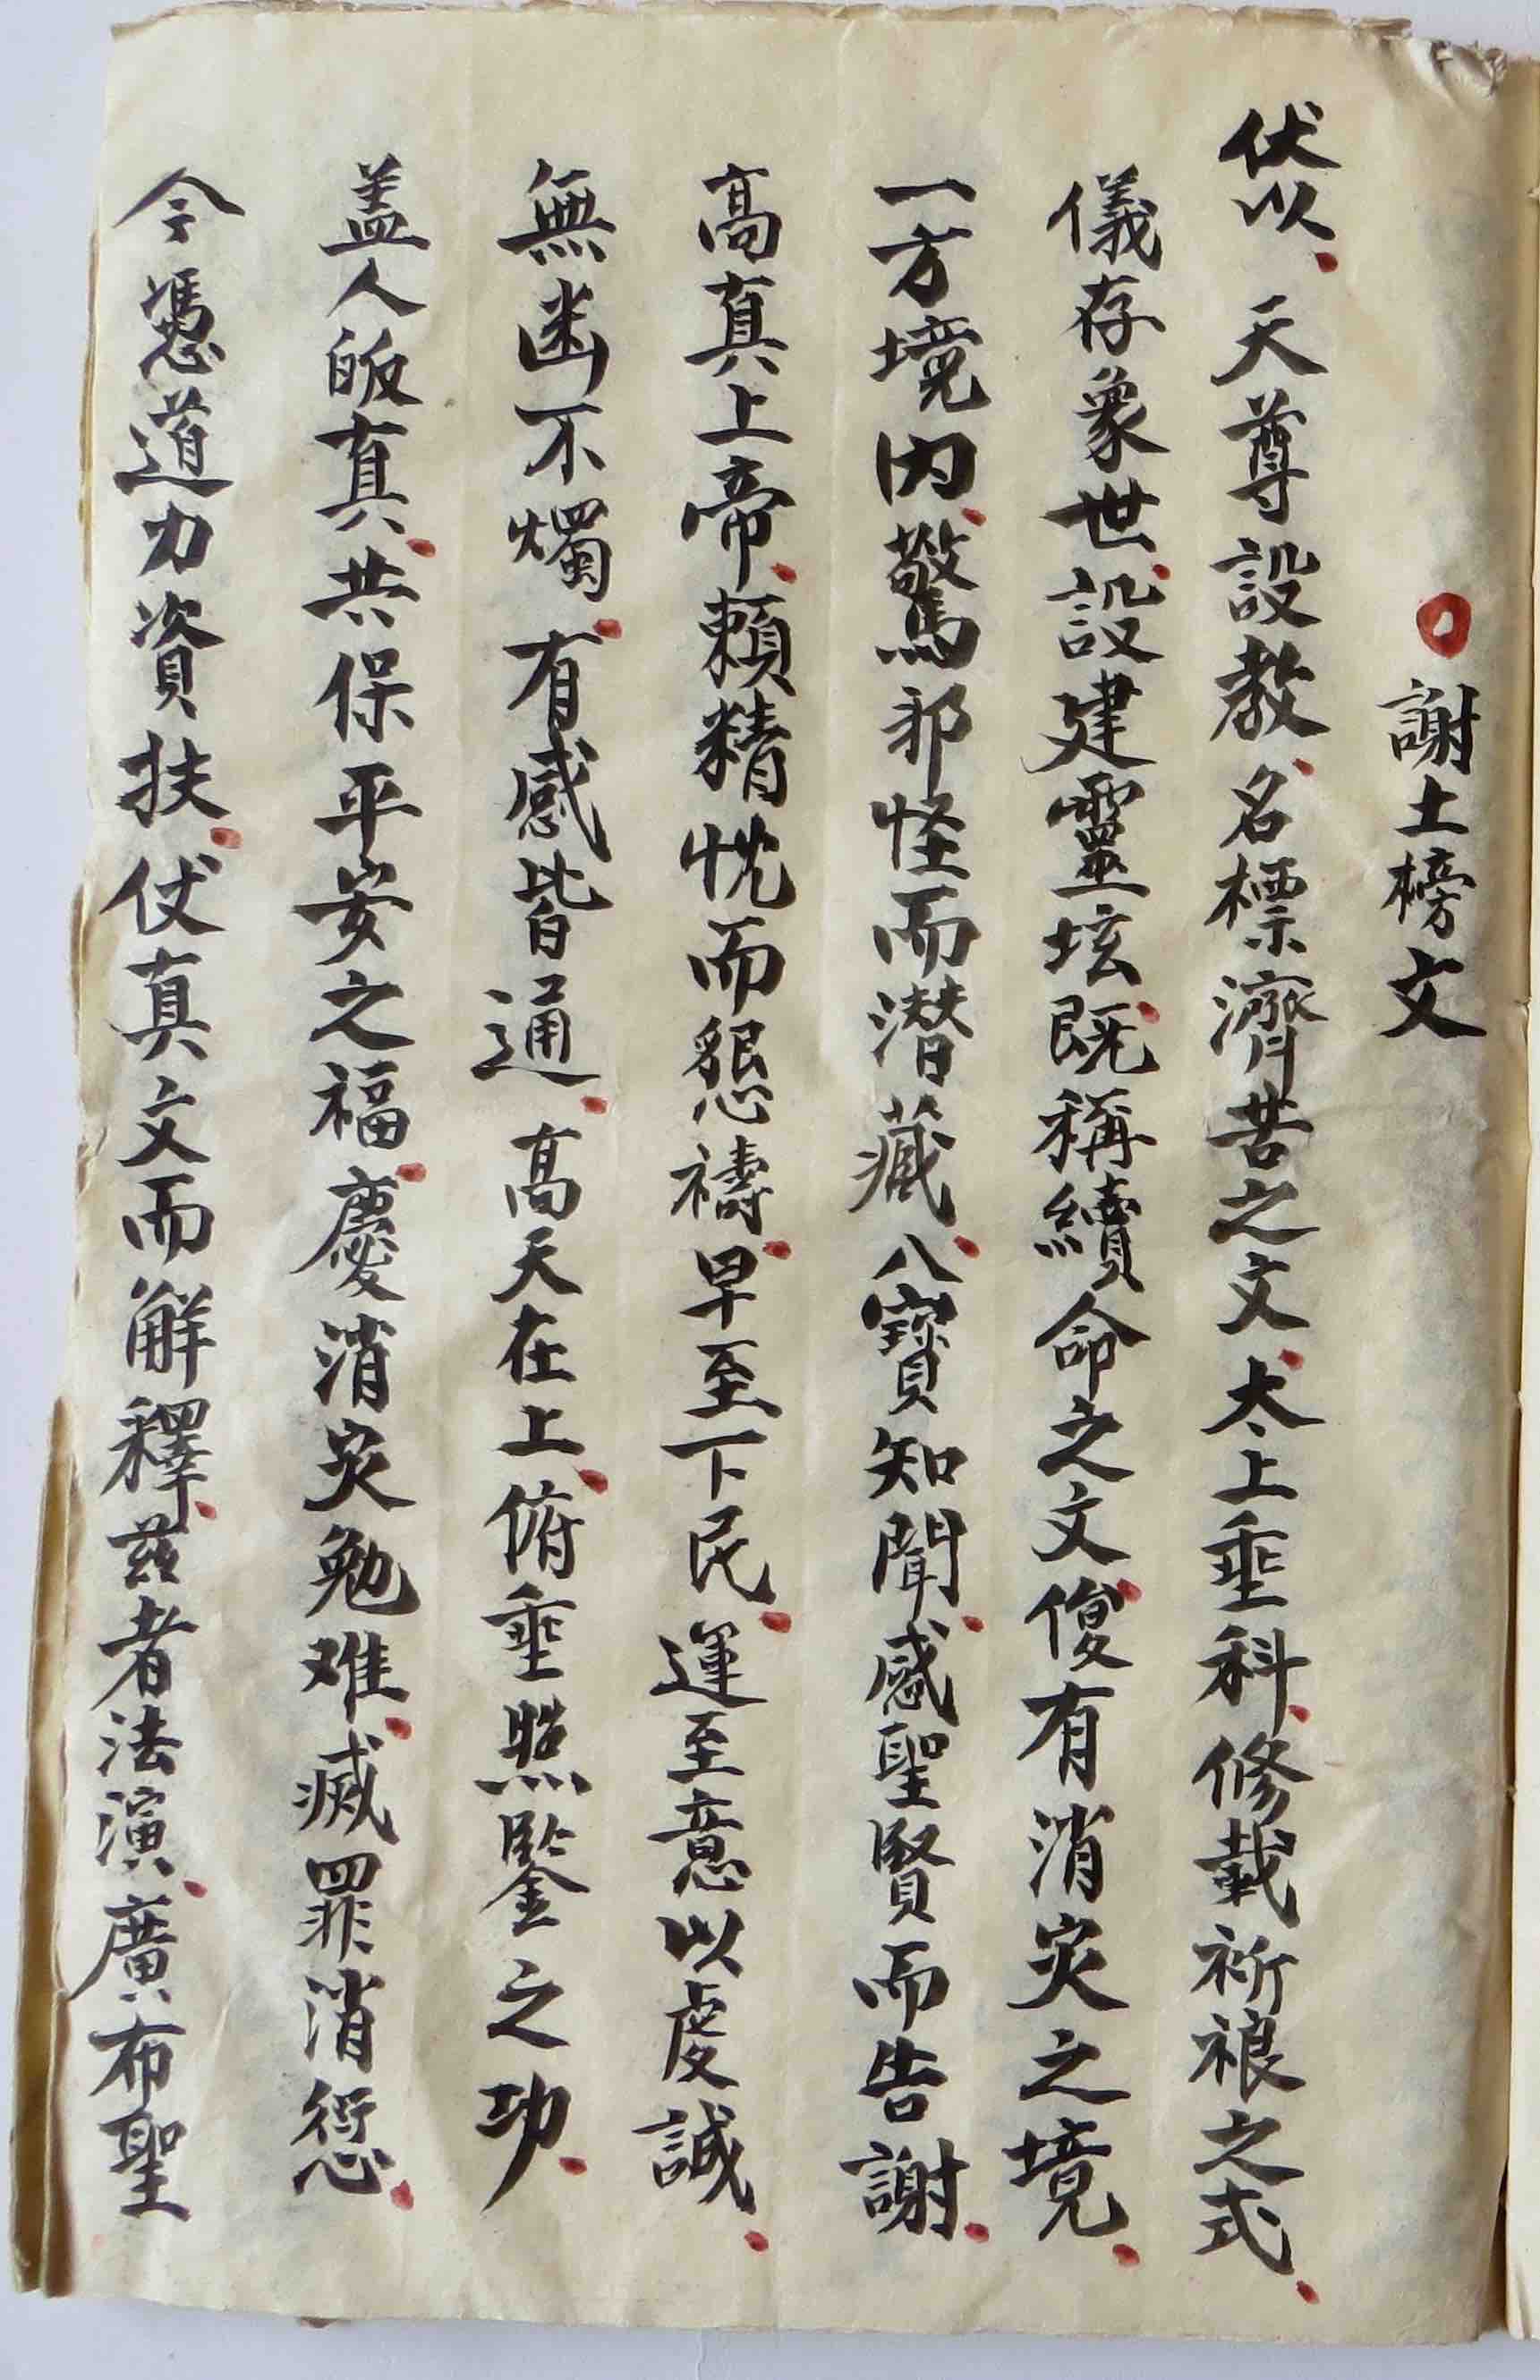 謝土榜文
伏以、天尊設教、名標濟苦之文、太上垂科、修載祈禳之式、
儀存象世、設建靈坛、既稱續命之文、復有消灾之境、
一方境内、驚邪怪而潜藏、八寶知聞、感聖賢而告謝、
高真上帝、賴精忱而懇禱、早至下民、運至意以虔誠、
無幽不燭、有感皆通、高天在上、俯垂照鑒之功、
盖人皈真、共保平安之福、慶消灾勉难、滅罪消愆、
今憑道力資扶、仗真文而解釋、兹者法演、廣布聖